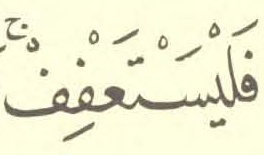 فَلْيَسْتَعْفِفْ ۚ